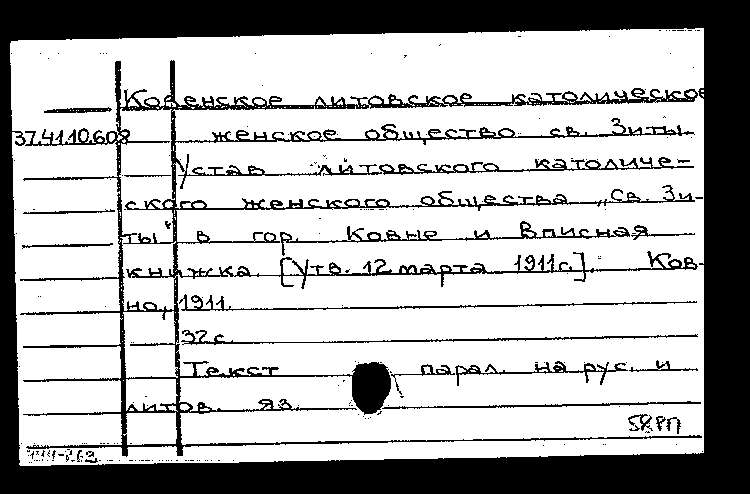 Ковенское литовское католическое
37.41.10.608 женское общество св. Зиты
Устав литовского католиче-
ского женского общества „Св. Зи-
ты" в гор. Ковне и Вписная
книжка. [Утв. 12 марта 1911г.]. Ков-
но, 1911.
32с.
Текст парал. на рус. и
литов. яз.